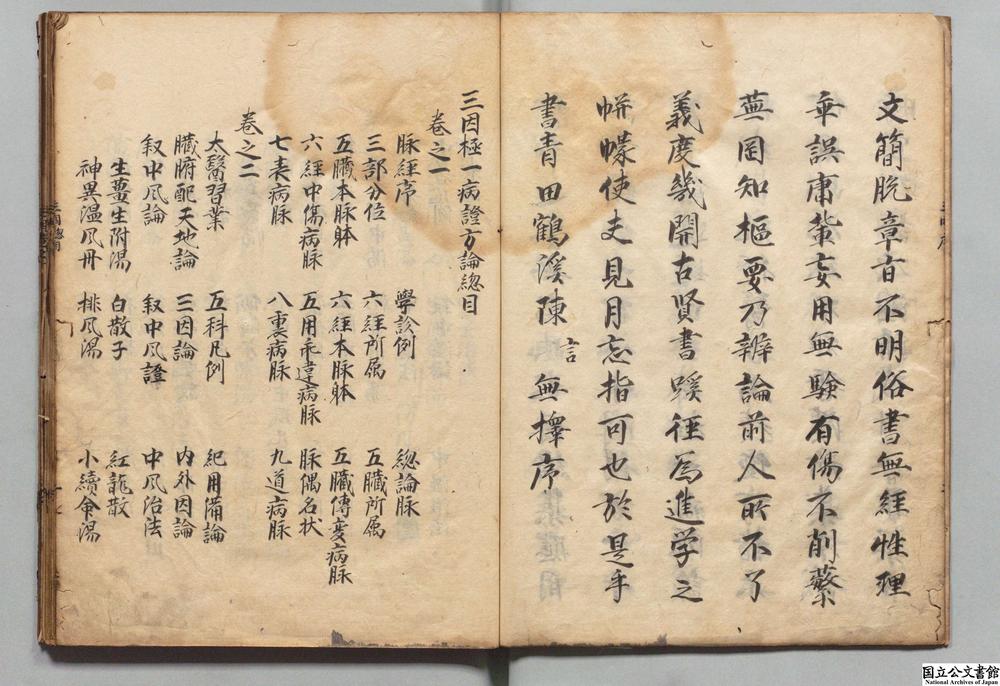 文簡脫章首不明俗書無經性理
乖誤庸輩妄用無驗有傷不削蘩
蕪罔知樞要乃辨論前人所不了
義庶幾開古賢書蹊徑為進学之
帡幪使夫見月忘指可也於是乎
書青田鶴溪陳言無擇序
三因極一病證方論總目
卷之一
脉經序 學診例 總論脉
三部分位 六經所属 五臟所属
五臟本脉躰 六經本脉躰 五臟傳変病脉
六經中傷病脉 五用乖違病脉 脉偶名状
七表病脉 八裏病脉 九道病脉
卷之二
太醫習業 五科凡例 紀用備論
臟腑配天地論 三因論 内外因論
叙中風論 叙中風證 中風治法
生薑生附湯 白散子 紅龍散
神異温風丹 排風湯 小續命湯
国立公文書館
National Archives of Japan